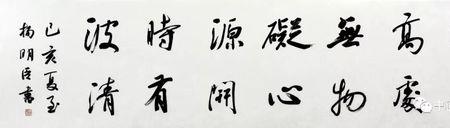 高處
無物
礙心
源開
時有
波清
己亥夏至
楊明臣書
中国